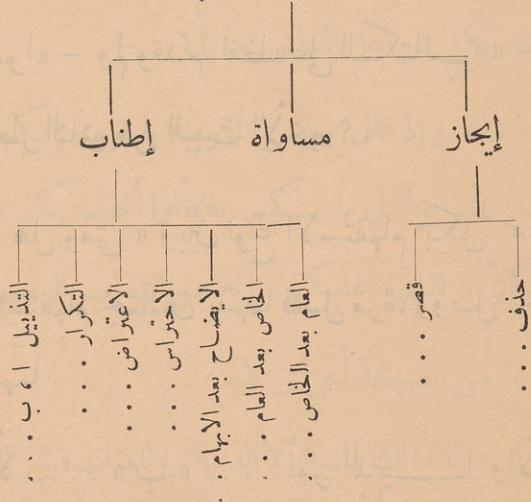 إيجاز
مساواة
إطناب
حذف . . .
قصر . . .
العام بعد الخاص . . .
الخاص بعد العام . . .
الايضاح بعد الابهام . .
الاحتراس . . .
الاعتراض . . .
التكرار . . . .
التذييل ا ، ب . . .